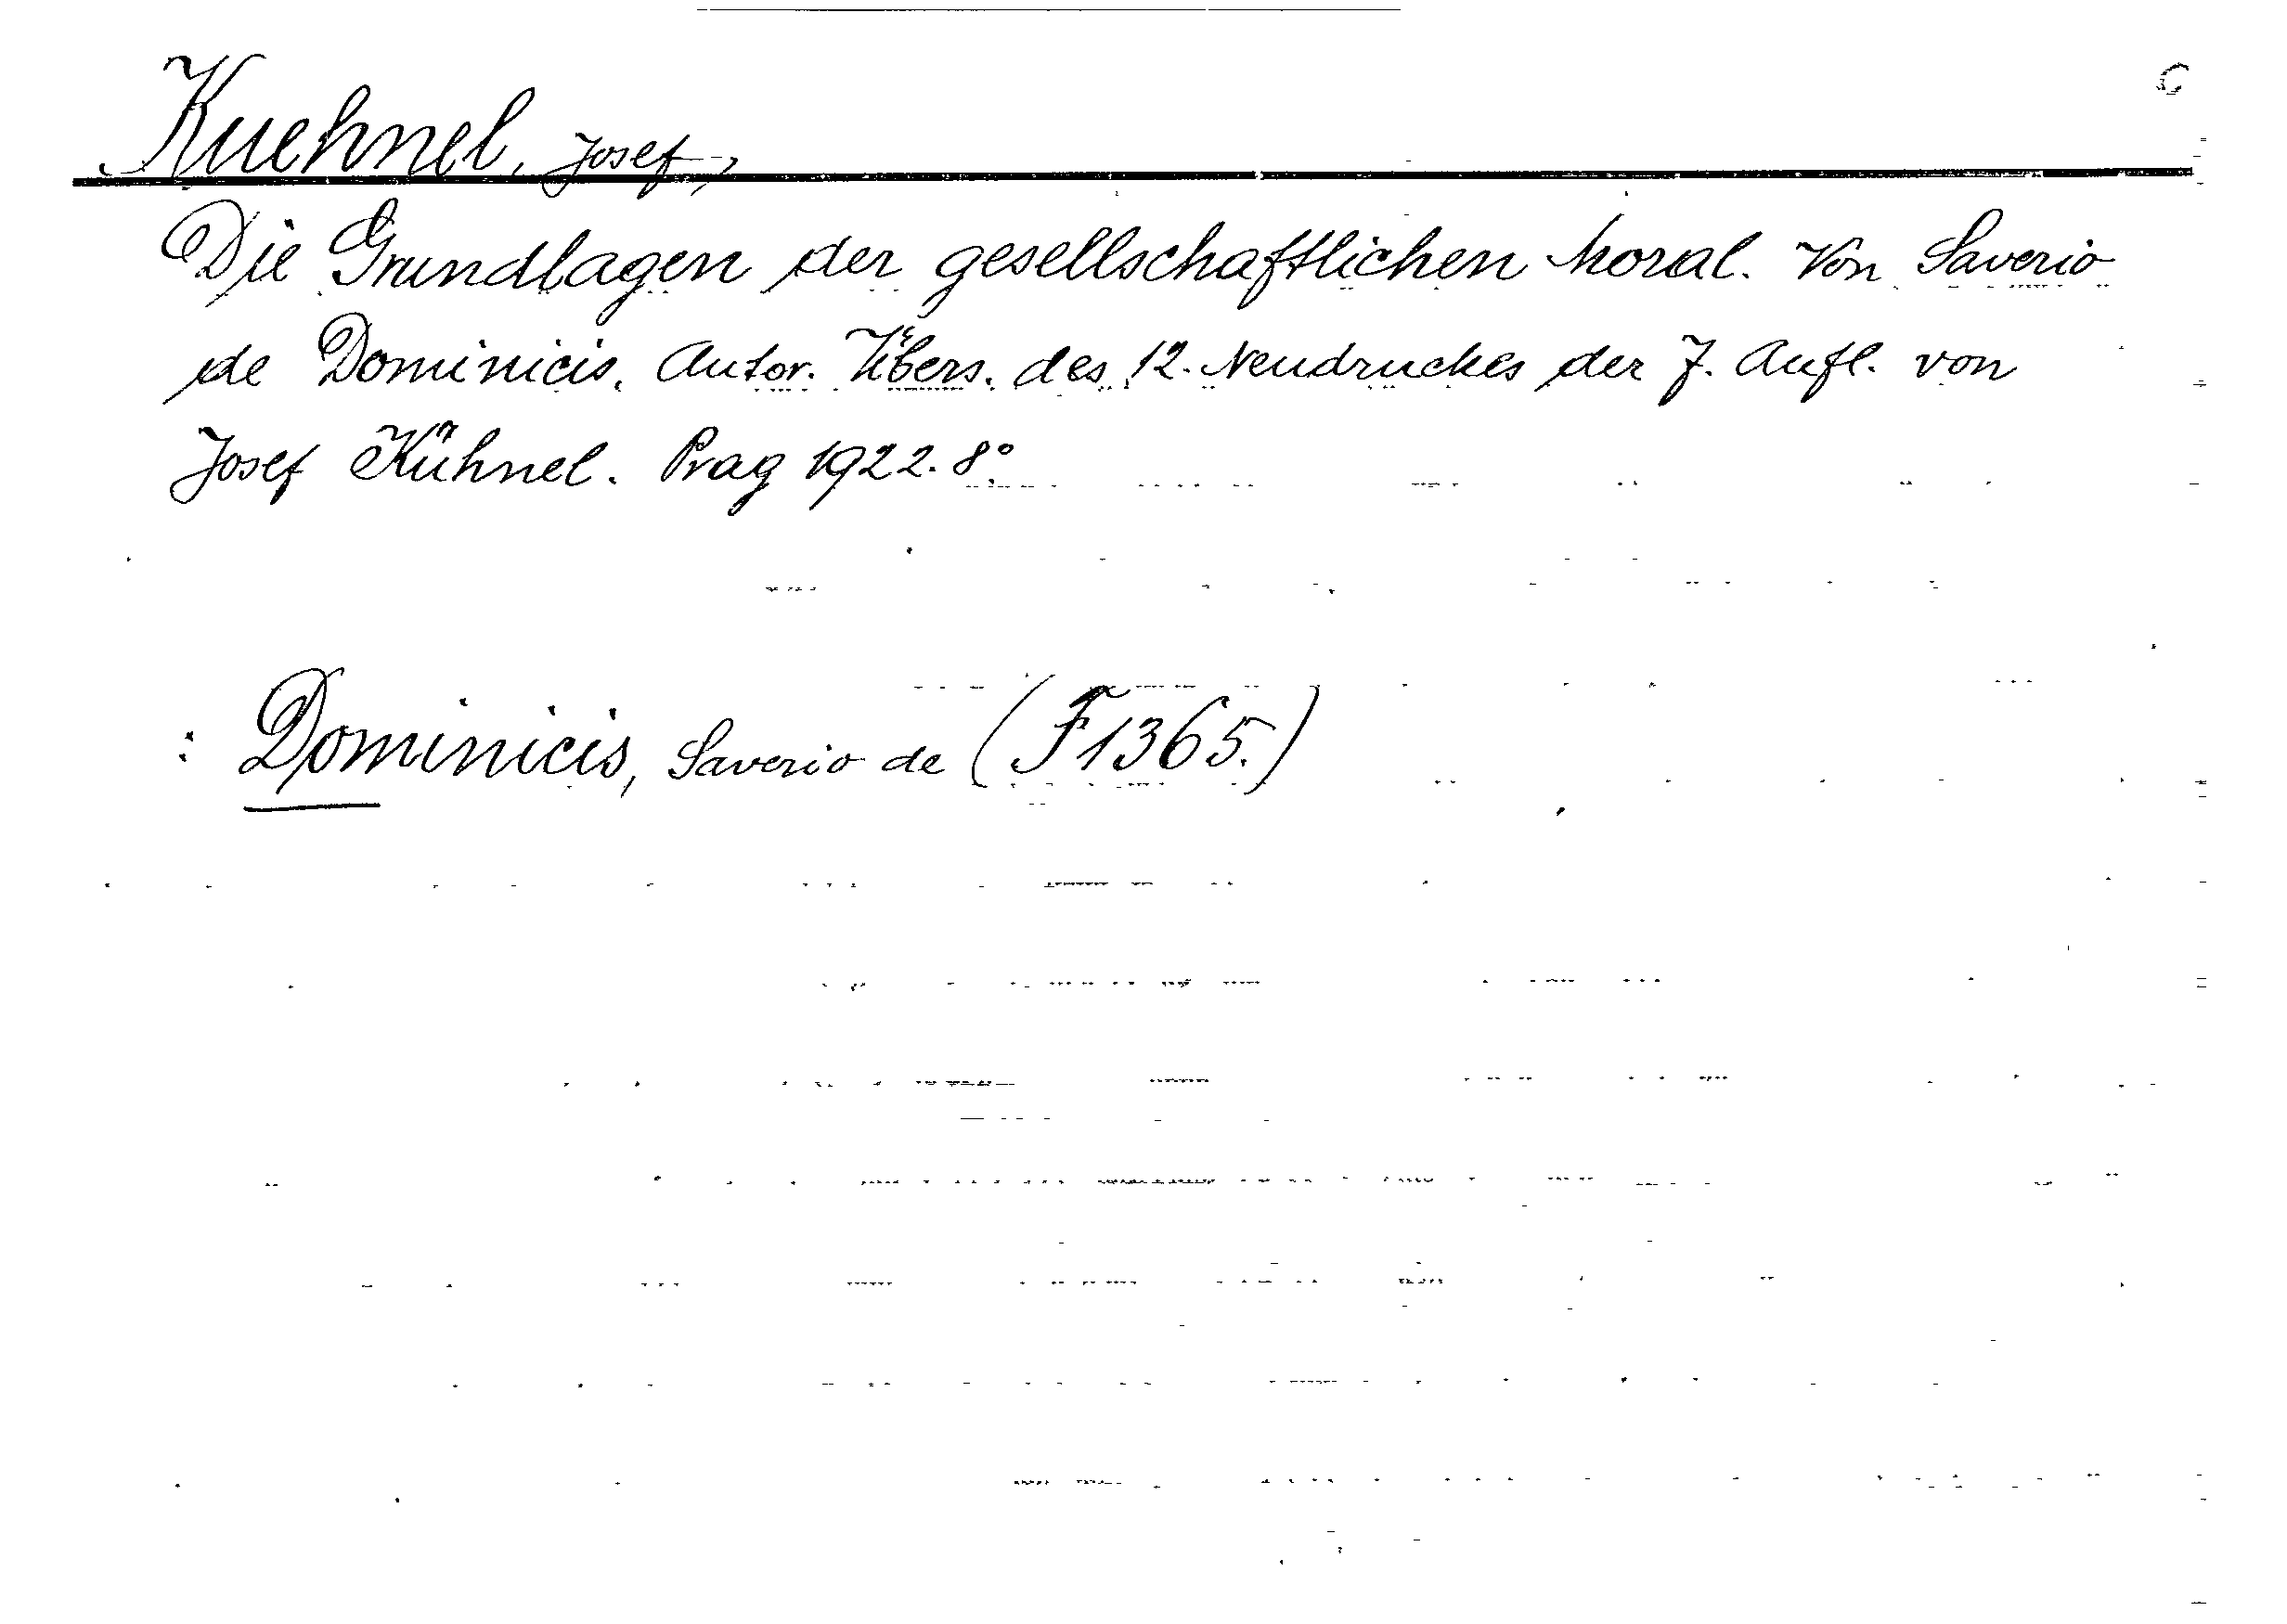 Kuehnel, Josef,
Die Grundlagen der gesellschaftlichen Moral. Von Saverio
de Dominicis. Autor. Übers. des 12. Neudruckes der 7. Aufl. von
Josef Kühnel. Prag 1922. 8°.
: Dominicis, Saverio de (F1365.)